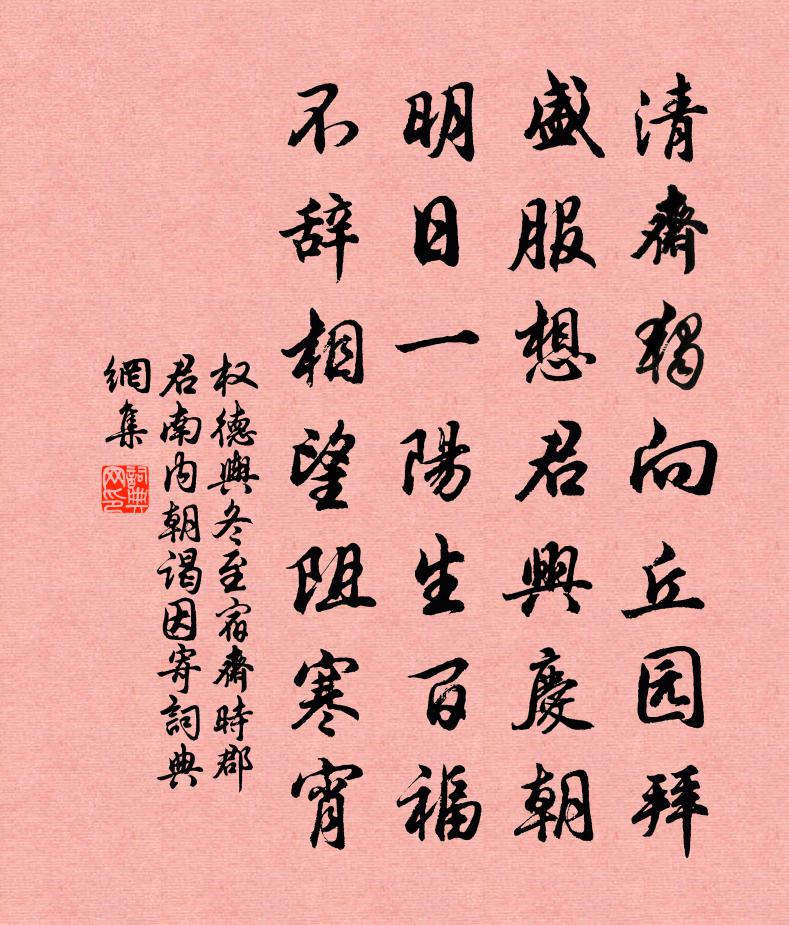 清齋獨向丘园拜
盛服想君興慶朝
明日一陽生百福
不辞相望阻寒宵
权德興冬至宿齋時郡
君南内朝谒因寄詞典
網集
詞典
网印